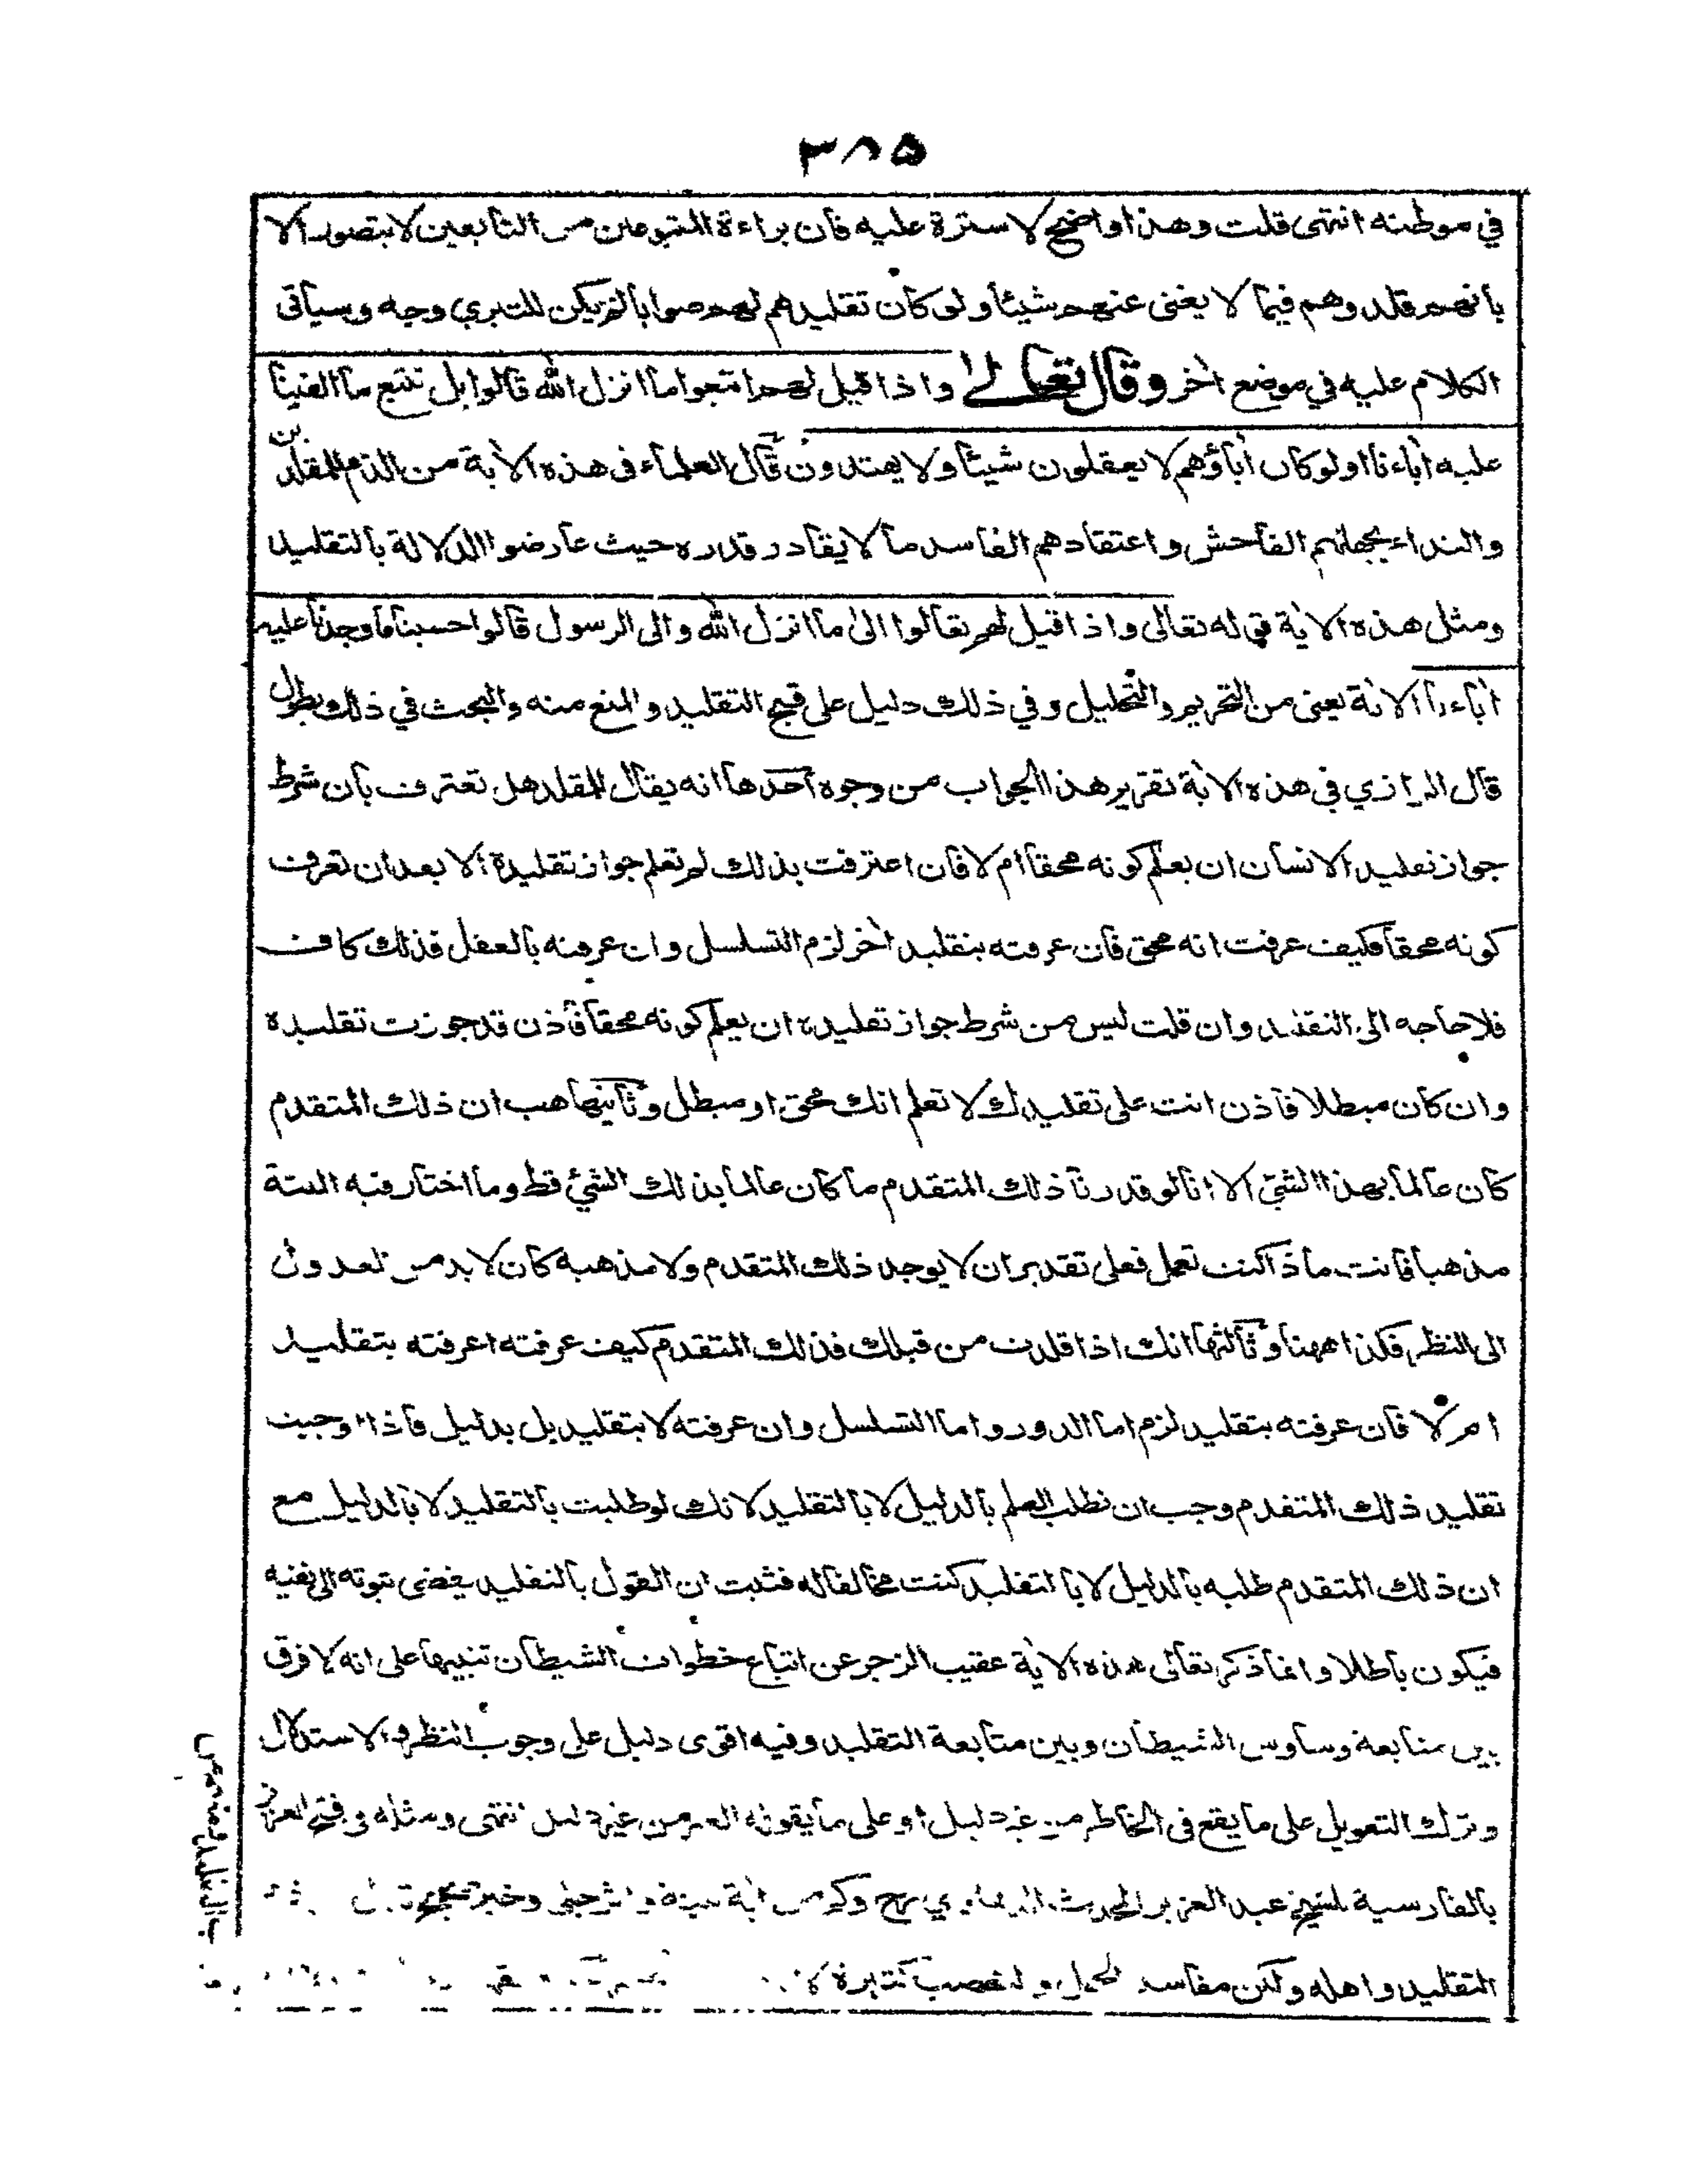 ٣٨٥
في موطنه انتهى قلت وهذا واضح لا سترة عليه فان براءة المتبوعين من التابعين لا يتصور الا
بانهم قلدوهم فيما لا يغنى عنهم شيئا ولو كان تقليدهم لهم صوابا لم يكن للتبري وجه وسيأتى
الكلام عليه في موضع اخر وقال تعالى واذا قيل لهم اتبعوا ما انزل الله قالوا بل نتبع ما الفينا
عليه اباءنا اولو كان اباؤهم لا يعقلون شيئا ولا يهتدون قال العلماء فى هذه الاية من الذم للمقلدين
والنداء بجهلهم الفاحش واعتقادهم الفاسد ما لا يقادر قدره حيث عارضوا الدلالة بالتقليد
ومثل هذه الاية قوله تعالى واذا قيل لهم تعالوا الى ما انزل الله والى الرسول قالوا حسبنا ما وجدنا عليه
اباءنا الاية يعنى من التحريم والتحليل وفي ذلك دليل على قبح التقليد والمنع منه والبحث في ذلك يطول
قال الرازي في هذه الاية تقرير هذا الجواب من وجوه احدها انه يقال للمقلد هل تعترف بان شرط
جواز تقليد الانسان ان يعلم كونه محقا ام لا فان اعترفت بذلك لم تعلم جواز تقليدة الا بعد ان تعرف
كونه محقا فكيف عرفت انه محق فان عرفته بتقليد اخر لزم التسلسل وان عرفته بالعقل فذلك كاف
فلا حاجه الى التقليد وان قلت ليس من شرط جواز تقليده ان يعلم كونه محقا فاذن قد جوزت تقليده
وان كان مبطلا فاذن انت على تقليدك لا تعلم انك محق او مبطل وثانيها هب ان ذلك المتقدم
كان عالما بهذا الشئ الا انا لو قدرنا ذلك المتقدم ما كان عالما بذلك الشئ قط وما اختار فيه البتة
مذهبا فانت ماذا كنت تعمل فعلى تقدير ان لا يوجد ذلك المتقدم ولا مذهبه كان لا بد من العدول
الى النظر فكذا ههنا وثالثها انك اذا قلدت من قبلك فذلك المتقدم كيف عرفته اعرفته بتقليد
ام لا فان عرفته بتقليد لزم اما الدور واما التسلسل وان عرفته لا بتقليد بل بدليل فاذا اوجبت
تقليد ذلك المتقدم وجب ان تطلب العلم بالدليل لا بالتقليد لانك لو طلبت بالتقليد لا بالدليل مع
ان ذلك المتقدم طلبه بالدليل لا بالتقليد كنت مخالفا له فثبت ان القول بالتقليد يفضى ثبوته الى نفيه
فيكون باطلا وانما ذكر تعالى هذه الاية عقيب الزجر عن اتباع خطوات الشيطان تنبيها على انه لا فرق
بين متابعة وساوس الشيطان وبين متابعة التقليد وفيه اقوى دليل على وجوب النظر والاستدلال
وترك التعويل على ما يقع فى الخاطر من غير دليل او على ما يقوله الغير من غير دليل انتهى ومثله فى فتح العزيز
بالفارسية للشيخ عبد العزيز المحدث الدهلوي رح وكم من اية بينة و
التقليد واهله ولكن مفاسد الجهل والتعصب كثيرة